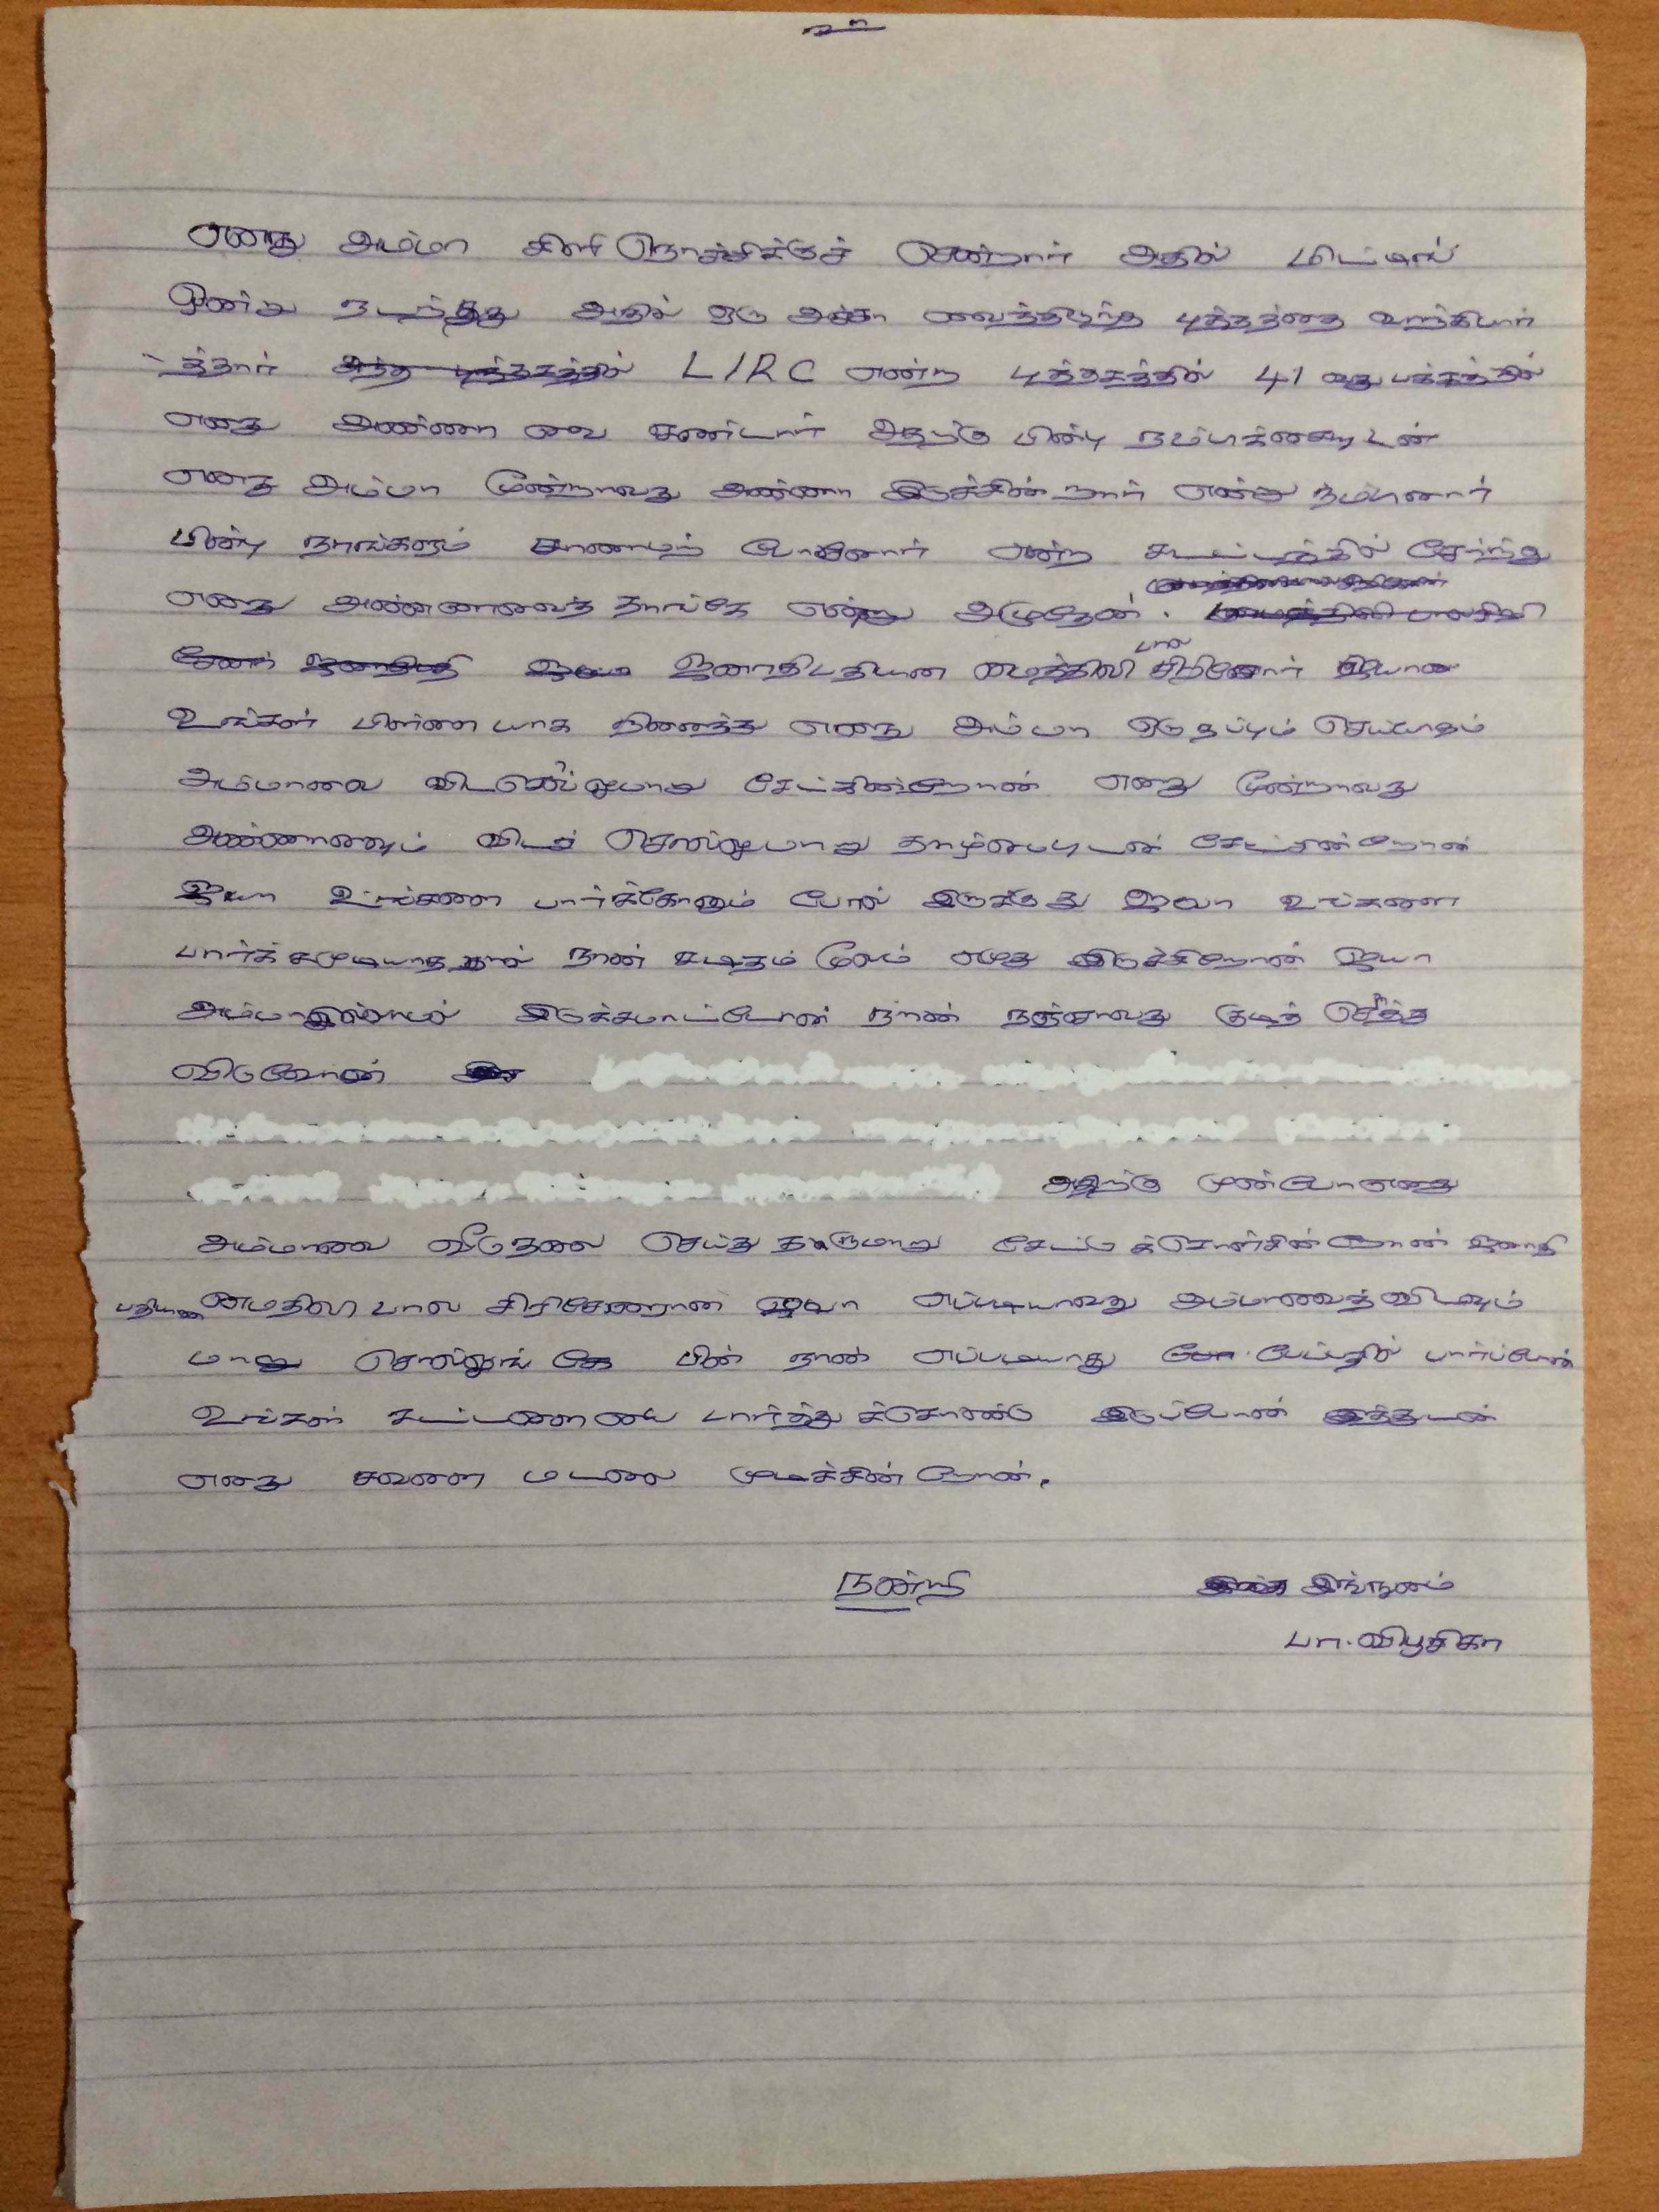 எனது அம்மா கிளிநொச்சிக்குச் சென்றார் அதில் மிட்டிங்
ஒன்று நடந்தது அதில் ஒரு அக்கா வைத்திருந்த புத்தகத்தை வாங்கிபார்
த்தார் LIRC என்ற புத்தகத்தில் 41 வது பக்கத்தில்
எனது அண்ணா வை கண்டார் அதற்கு பின்பு நம்பிக்கையுடன்
எனது அம்மா மூன்றாவது அண்ணா இருக்கின்றார் என்று நம்பினார்
பின்பு நாங்களும் காணாமற் போனோர் என்ற கூட்டத்தில் சேர்ந்து
எனது அண்ணாவைத் தாங்கே என்று அழுதேன்.
ஜனாதிபதியான மைத்திலி பால சிறிசேனார் ஐயா
உங்கள் பிள்ளை யாக நினைத்து எனது அம்மா ஒரு தப்பும் செய்யாதம்
அம்மாவை விடசொல்லுமாறு கேட்கின்றோன் எனது மூன்றாவது
அண்ணாவையும் விடச் சொல்லுமாறு தாழ்மையுடன் கேட்கின்றோன்
ஐயா உங்களை பார்க்கோனும் போல் இருக்குது ஐயா உங்களை
பார்க்கமுடியாததால் நான் கடிதம் மூலம் எழுத இருக்கிறோன் ஐயா
அம்மாஇல்லாமல் இருக்கமாட்டோன் நான் நஞ்சாவது குடித் செத்த
விடுவோன்
அதற்கு முன்போ எனது
அம்மாவை விடுதலை செய்து தருமாறு கேட்டு க்கொள்கின்றோன் ஜனாதி
பதியான மைதிலி பால சிரிசேனரான ஐயா எப்படியாவது அம்மாவைத் விடவும்
மாறு சொல்லுங் கே பின் நான் எப்படியாது பேப்பரில் பார்ப்போன்
உங்கள் கட்டளை யை பார்த்து க்கொண்டு இருப்போன் இத்துடன்
எனது கவலை மடலை முடிக்கின் றோன்.
நன்றி இங்ஙனம்
பா. விபூசிகா